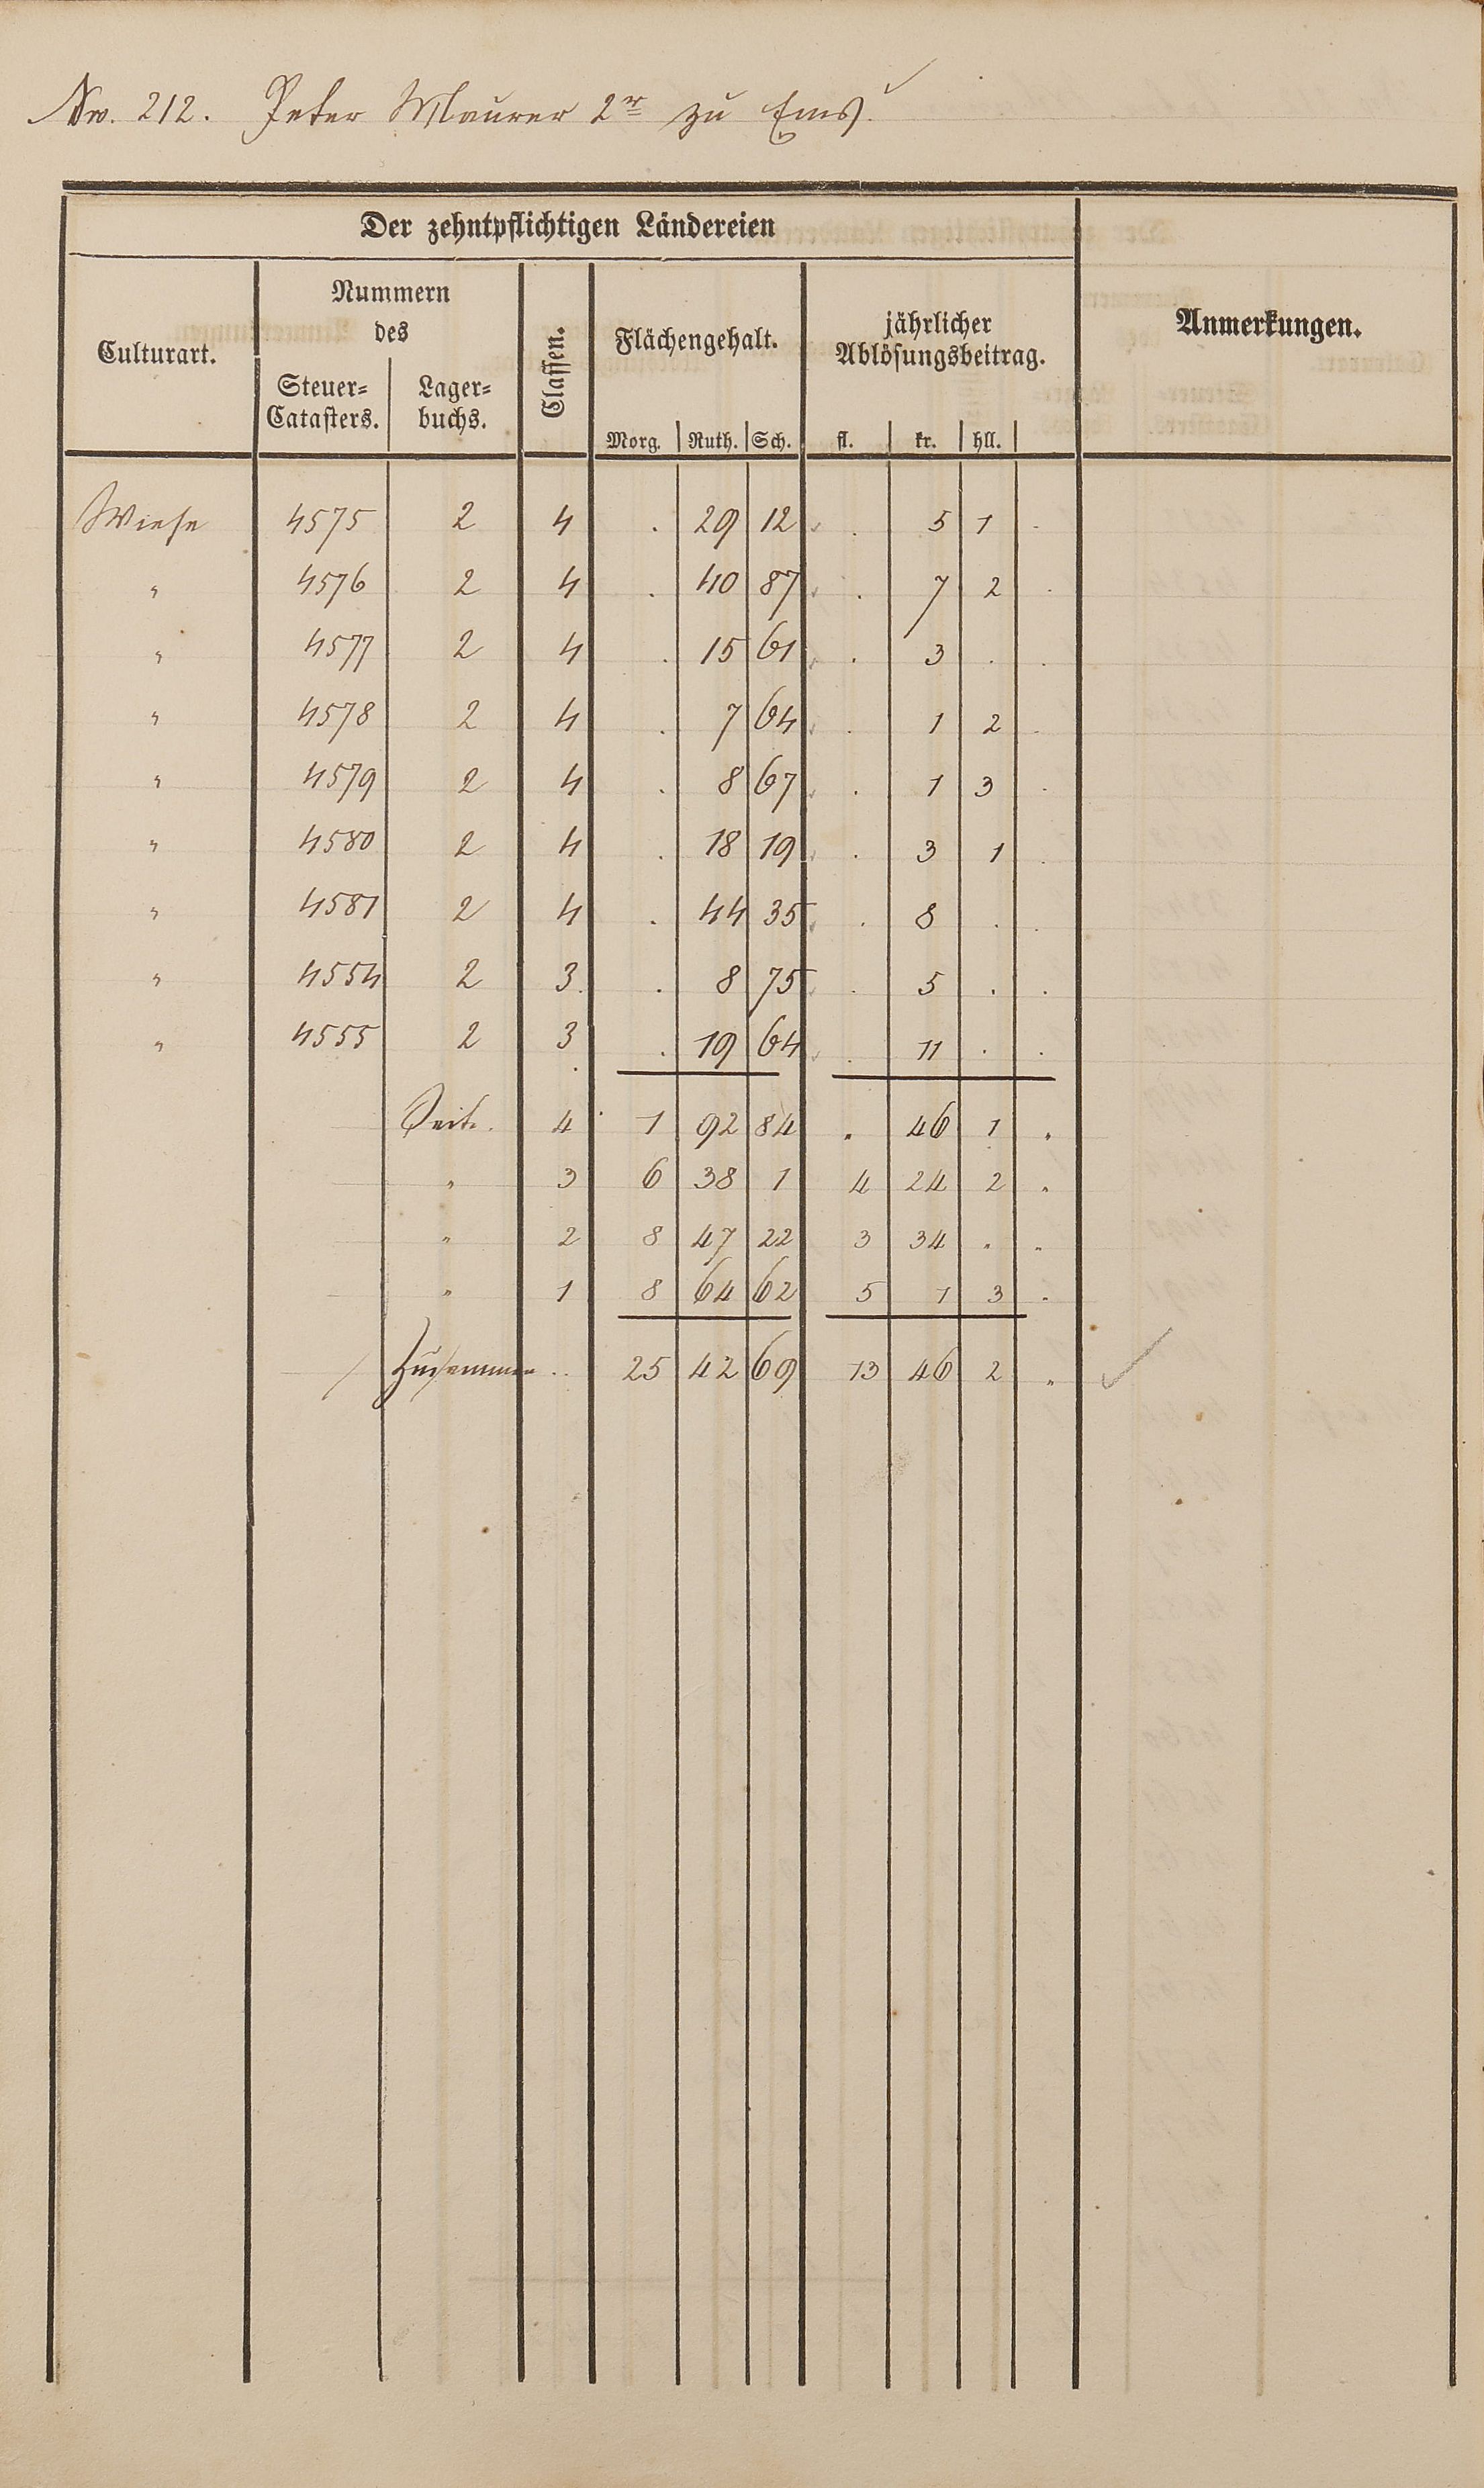 No. 212. Peter Maurer 2r zu Ems.
Der zehntpflichtigen Ländereien
Culturart.
Nummern
des
Steuer=
Catasters.
Lager=
buchs.
Classen.
Flächengehalt.
Morg. Ruth. Sch.
jährlicher
Ablösungsbeitrag.
fl. kr. hll.
Anmerkungen.
Wiese 4575 2 4 . 29 12 . 5 1 .
" 4576 2 4 . 40 87 . 7 2 .
" 4577 2 4 . 15 61 . 3 . .
" 4578 2 4 . 7 64 . 1 2 .
" 4579 2 4 . 8 67 . 1 3 .
" 4580 2 4 . 18 19 . 3 1 .
" 4581 2 4 . 44 35 . 8 . .
" 4554 2 3 . 8 75 . 5 . .
" 4555 2 3 . 19 64 . 11 . .
Seite. 4 1 92 84 " 46 1 "
" 3 6 38 1 4 24 2 "
" 2 8 47 22 3 34 " "
" 1 8 64 62 5 1 3 "
Zusammen .. 25 42 69 13 46 2 "